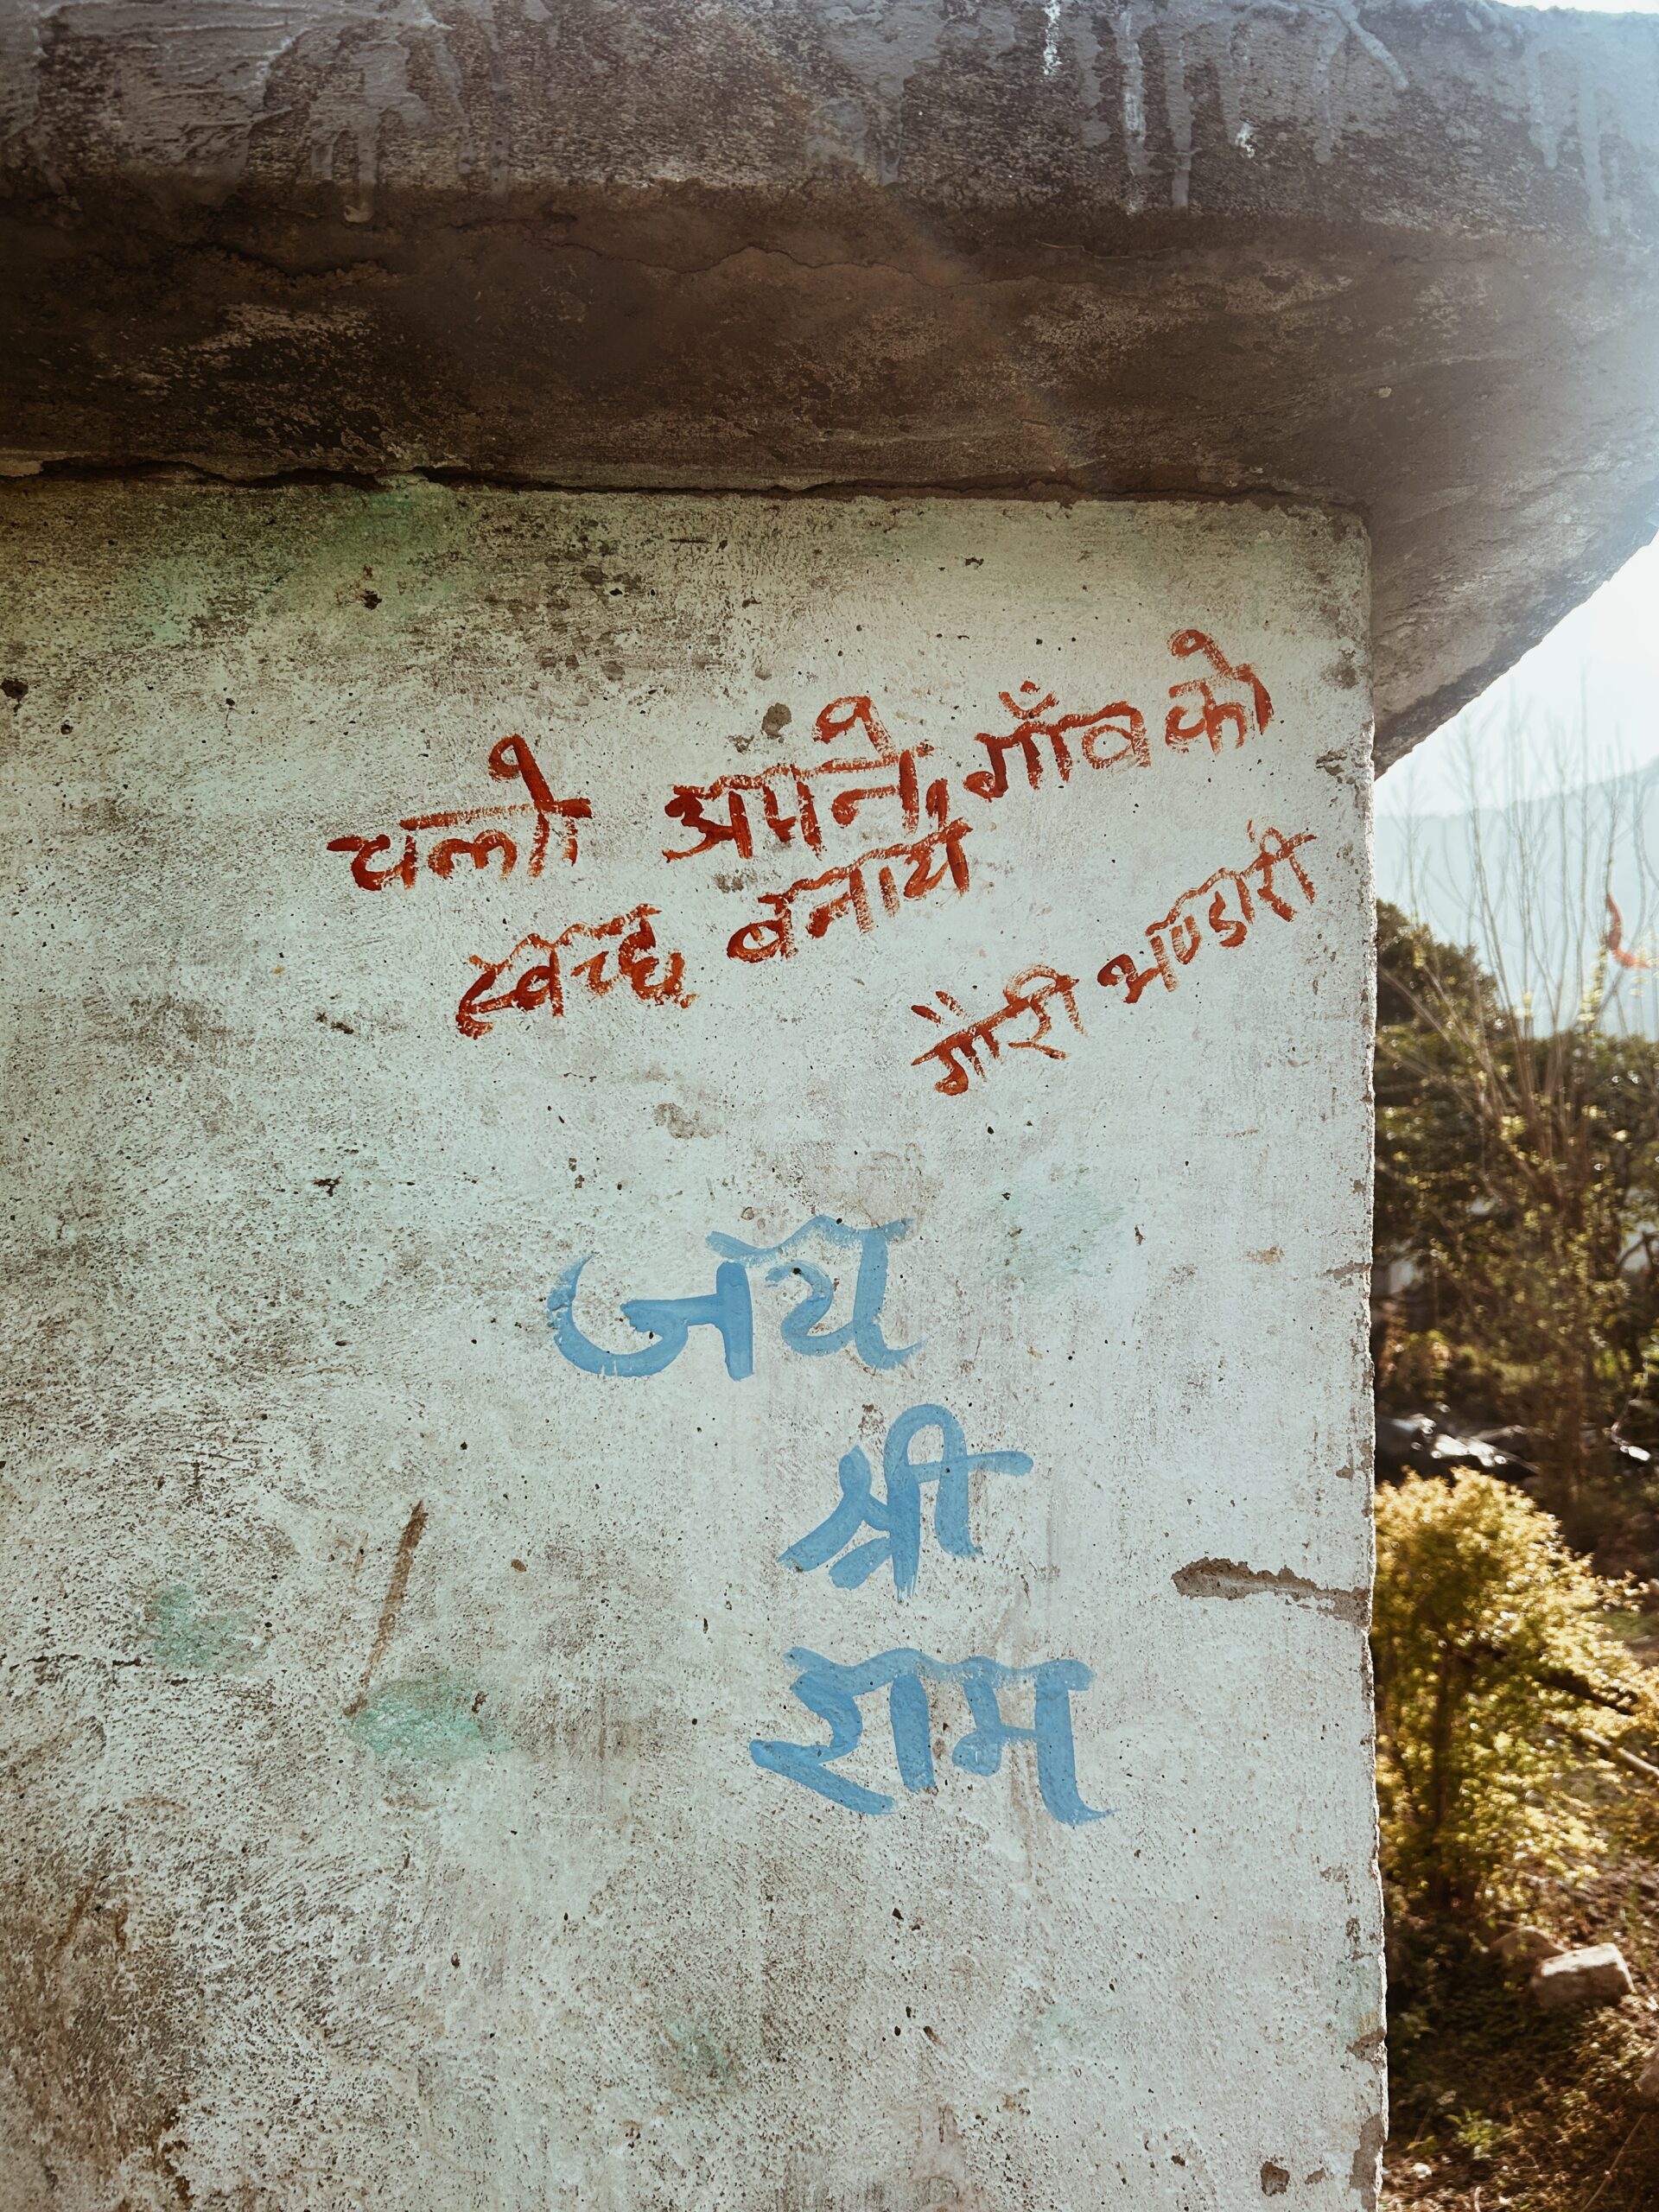 चलो अपने गाँव को
स्वच्छ बनाये
गौरी भण्डारी
जय
श्री
राम